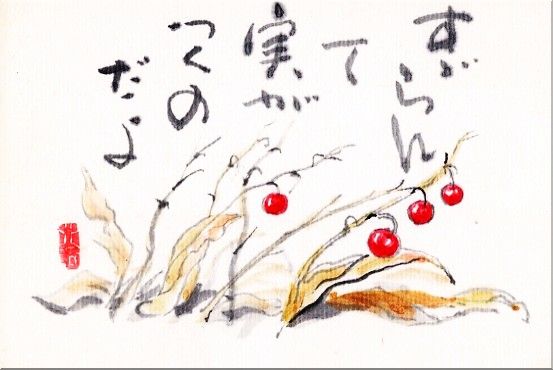 すゞらん
て
実が
つくの
だよ